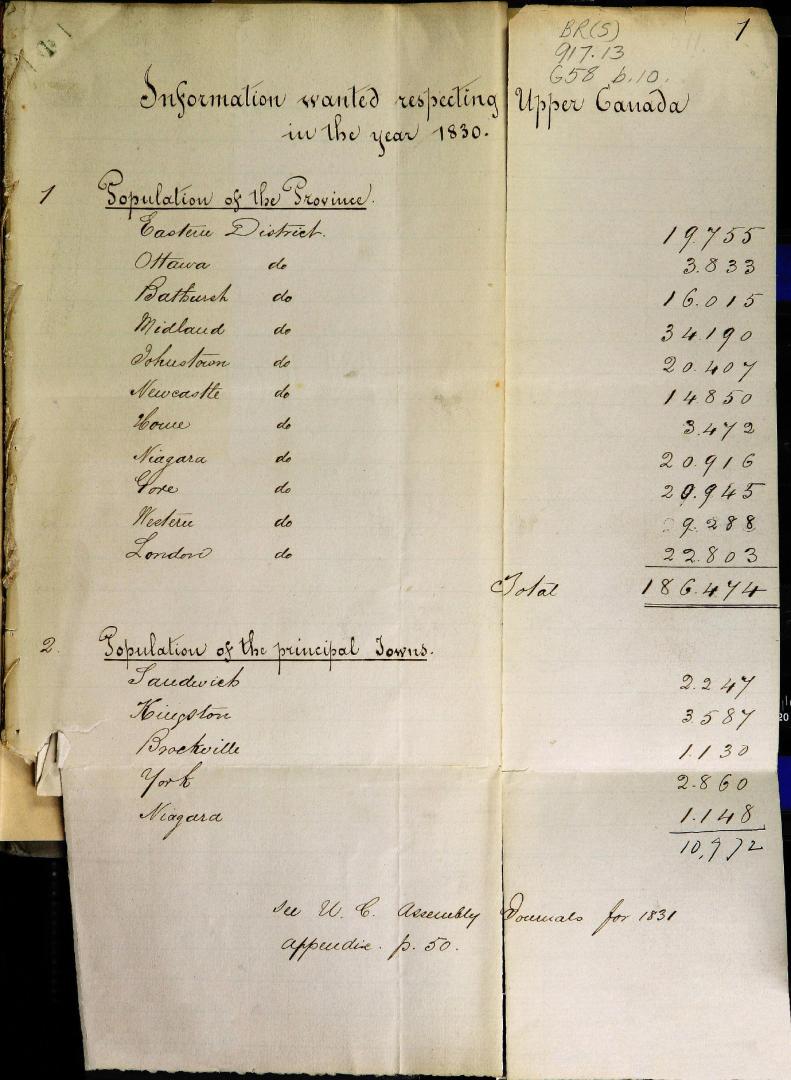 1
BR(S)
917.13
G58 b.10.
Information wanted respecting Upper Canada
in the year 1830.
1 Population of the Province.
Eastern District. 19.755
Ottawa do 3.833
Bathurst do 16.015
Midland do 34.190
Johnstown do 20.407
Newcastle do 14850
Home do 3.472
Niagara do 20.916
Gore do 20.945
Western do 9.288
London do 22.803
Total 186.474
2. Population of the principal Towns.
Sandwich 2.247
Kingston 3.587
Brockville 1.130
York 2.860
Niagara 1.148
10,972
see U. C. Assembly Journals for 1831
appendix. p. 50.